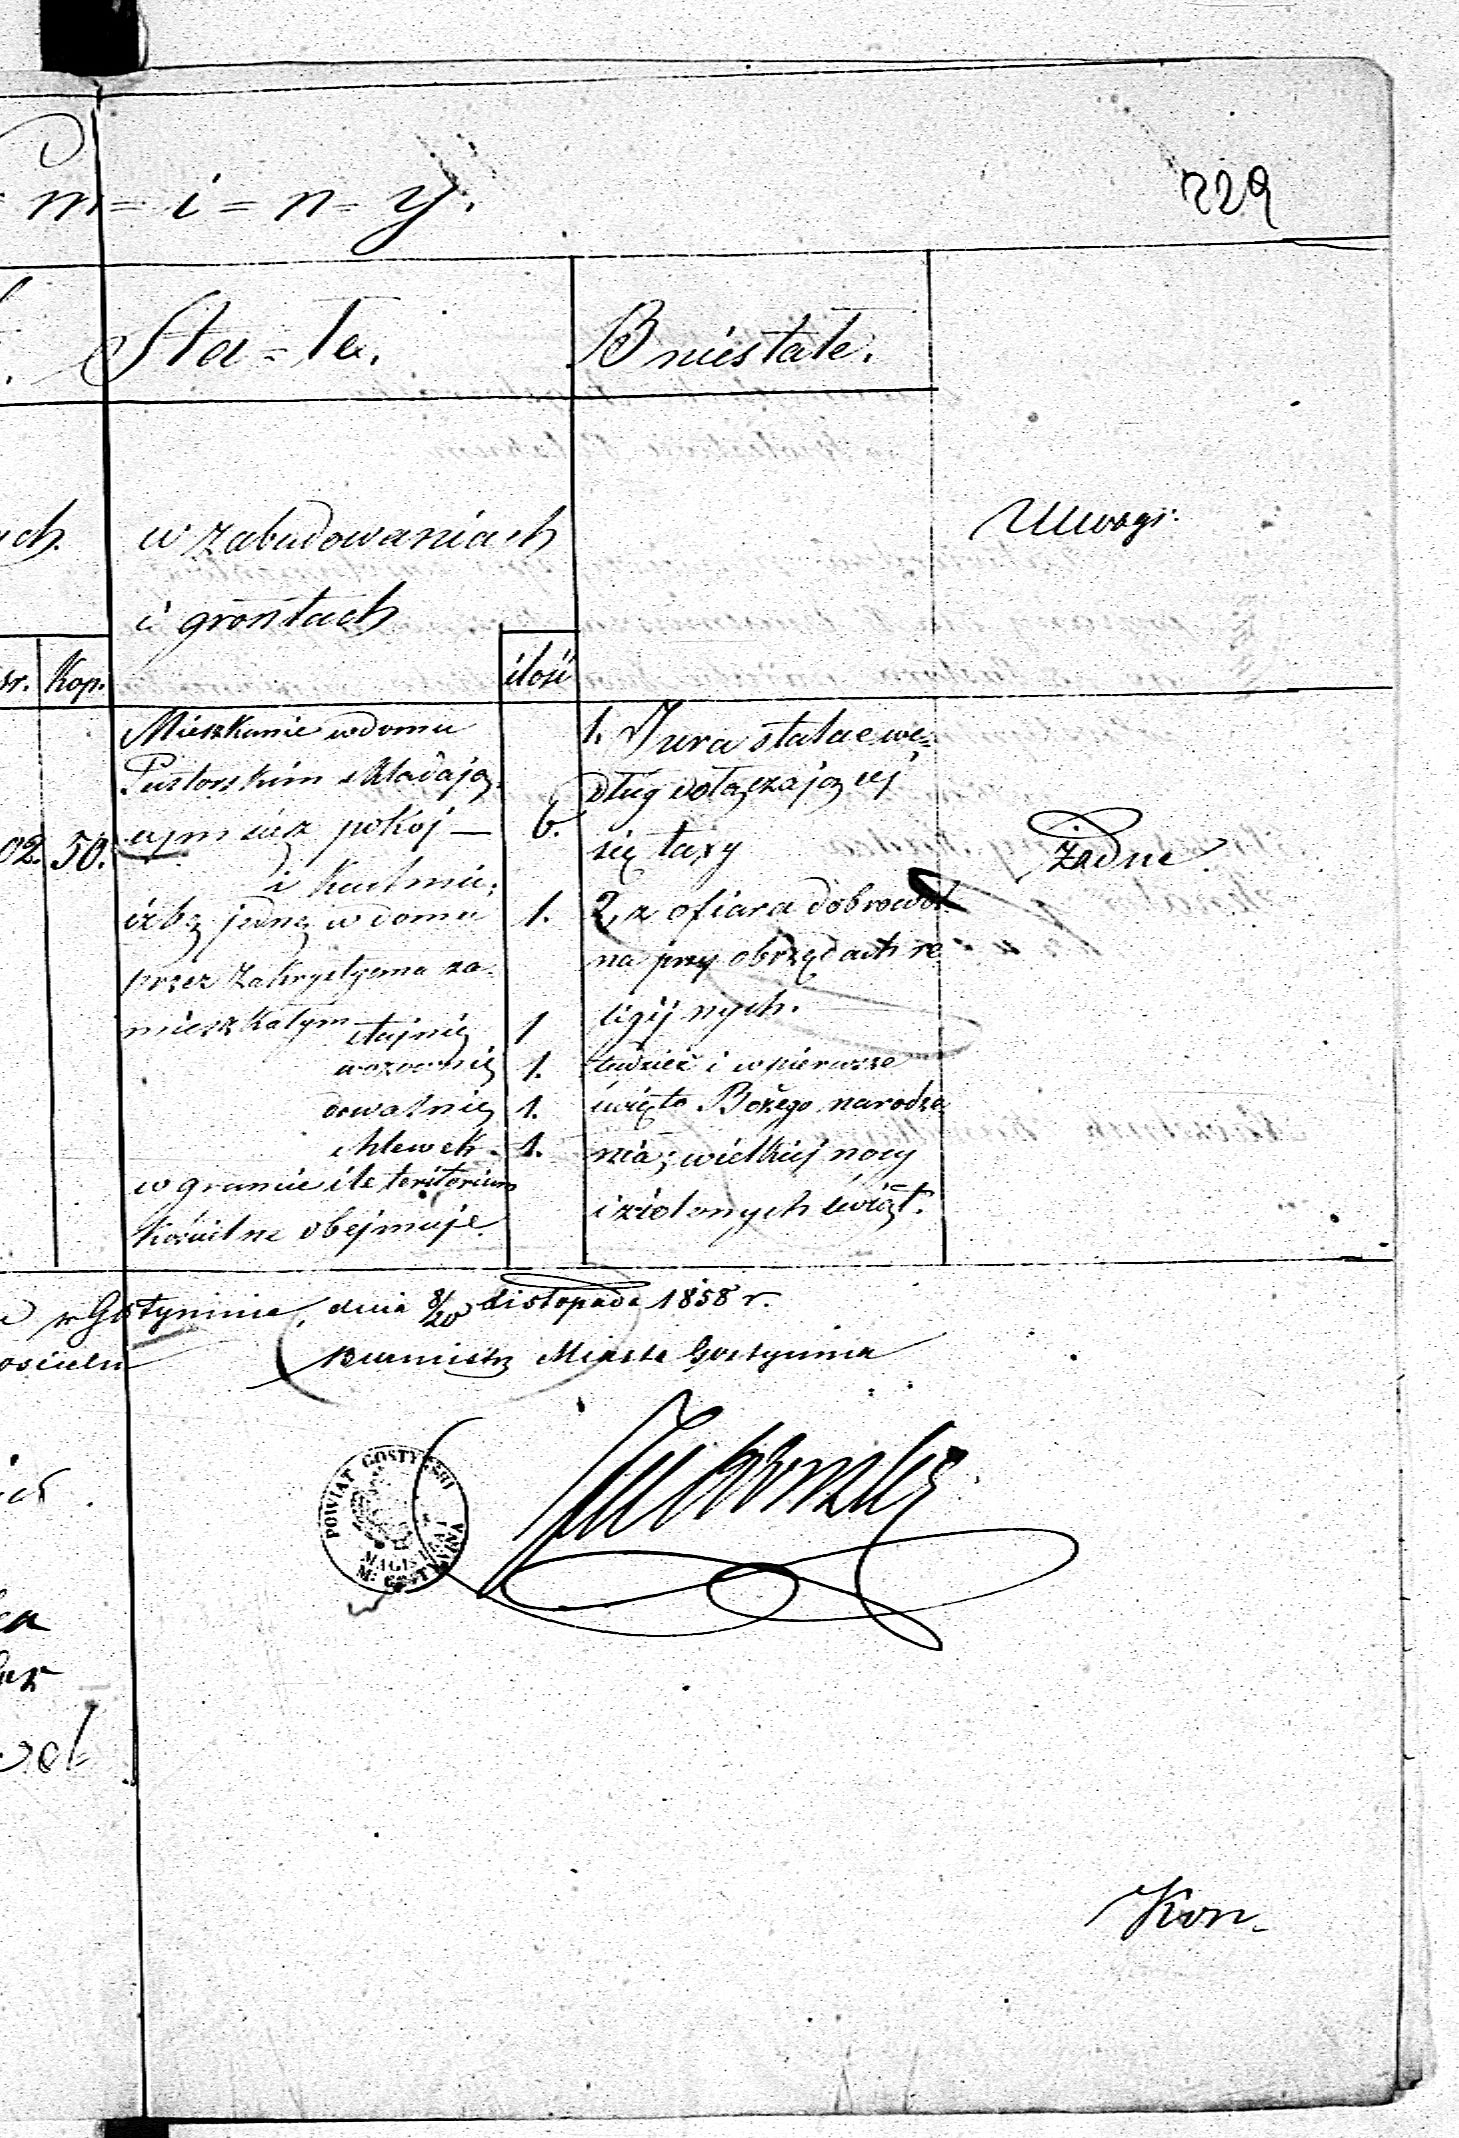 = m = i = n = y.
229
Sta = łe.
B niestałe.
w zabudowaniach
i grontach
Uwagi.
sr. Kop. ilość
02. 50.
Mieszkanie w domu
Pastorskim składają,
cym się z pokoj — 6.
i kuchnie,
izbę jednę w domu 1.
przez Zakrystyana za-
mieszkałym
stajnię 1
wozownię 1.
drwalnię 1.
chlewek. 1.
w gruncie ile teritorium
kościelne obejmuje.
1. Jura stolae we-
dług dołączającej
się taxy
2, z ofiara dobrowol
na przy obrzędach re
ligijnych.
tudzież i w pierwsze
święto Bożego narodze
nia; wielkiej nocy
i zielonych świąt.
Żadne
w Gostyninie, dnia 8/20 Listopada 1858 r.
ościelu
Burmistrz Miasta Gostynina
POWIAT GOSTYŃSKI
MAGISTRAT
M. GOSTYNINA
Kon-